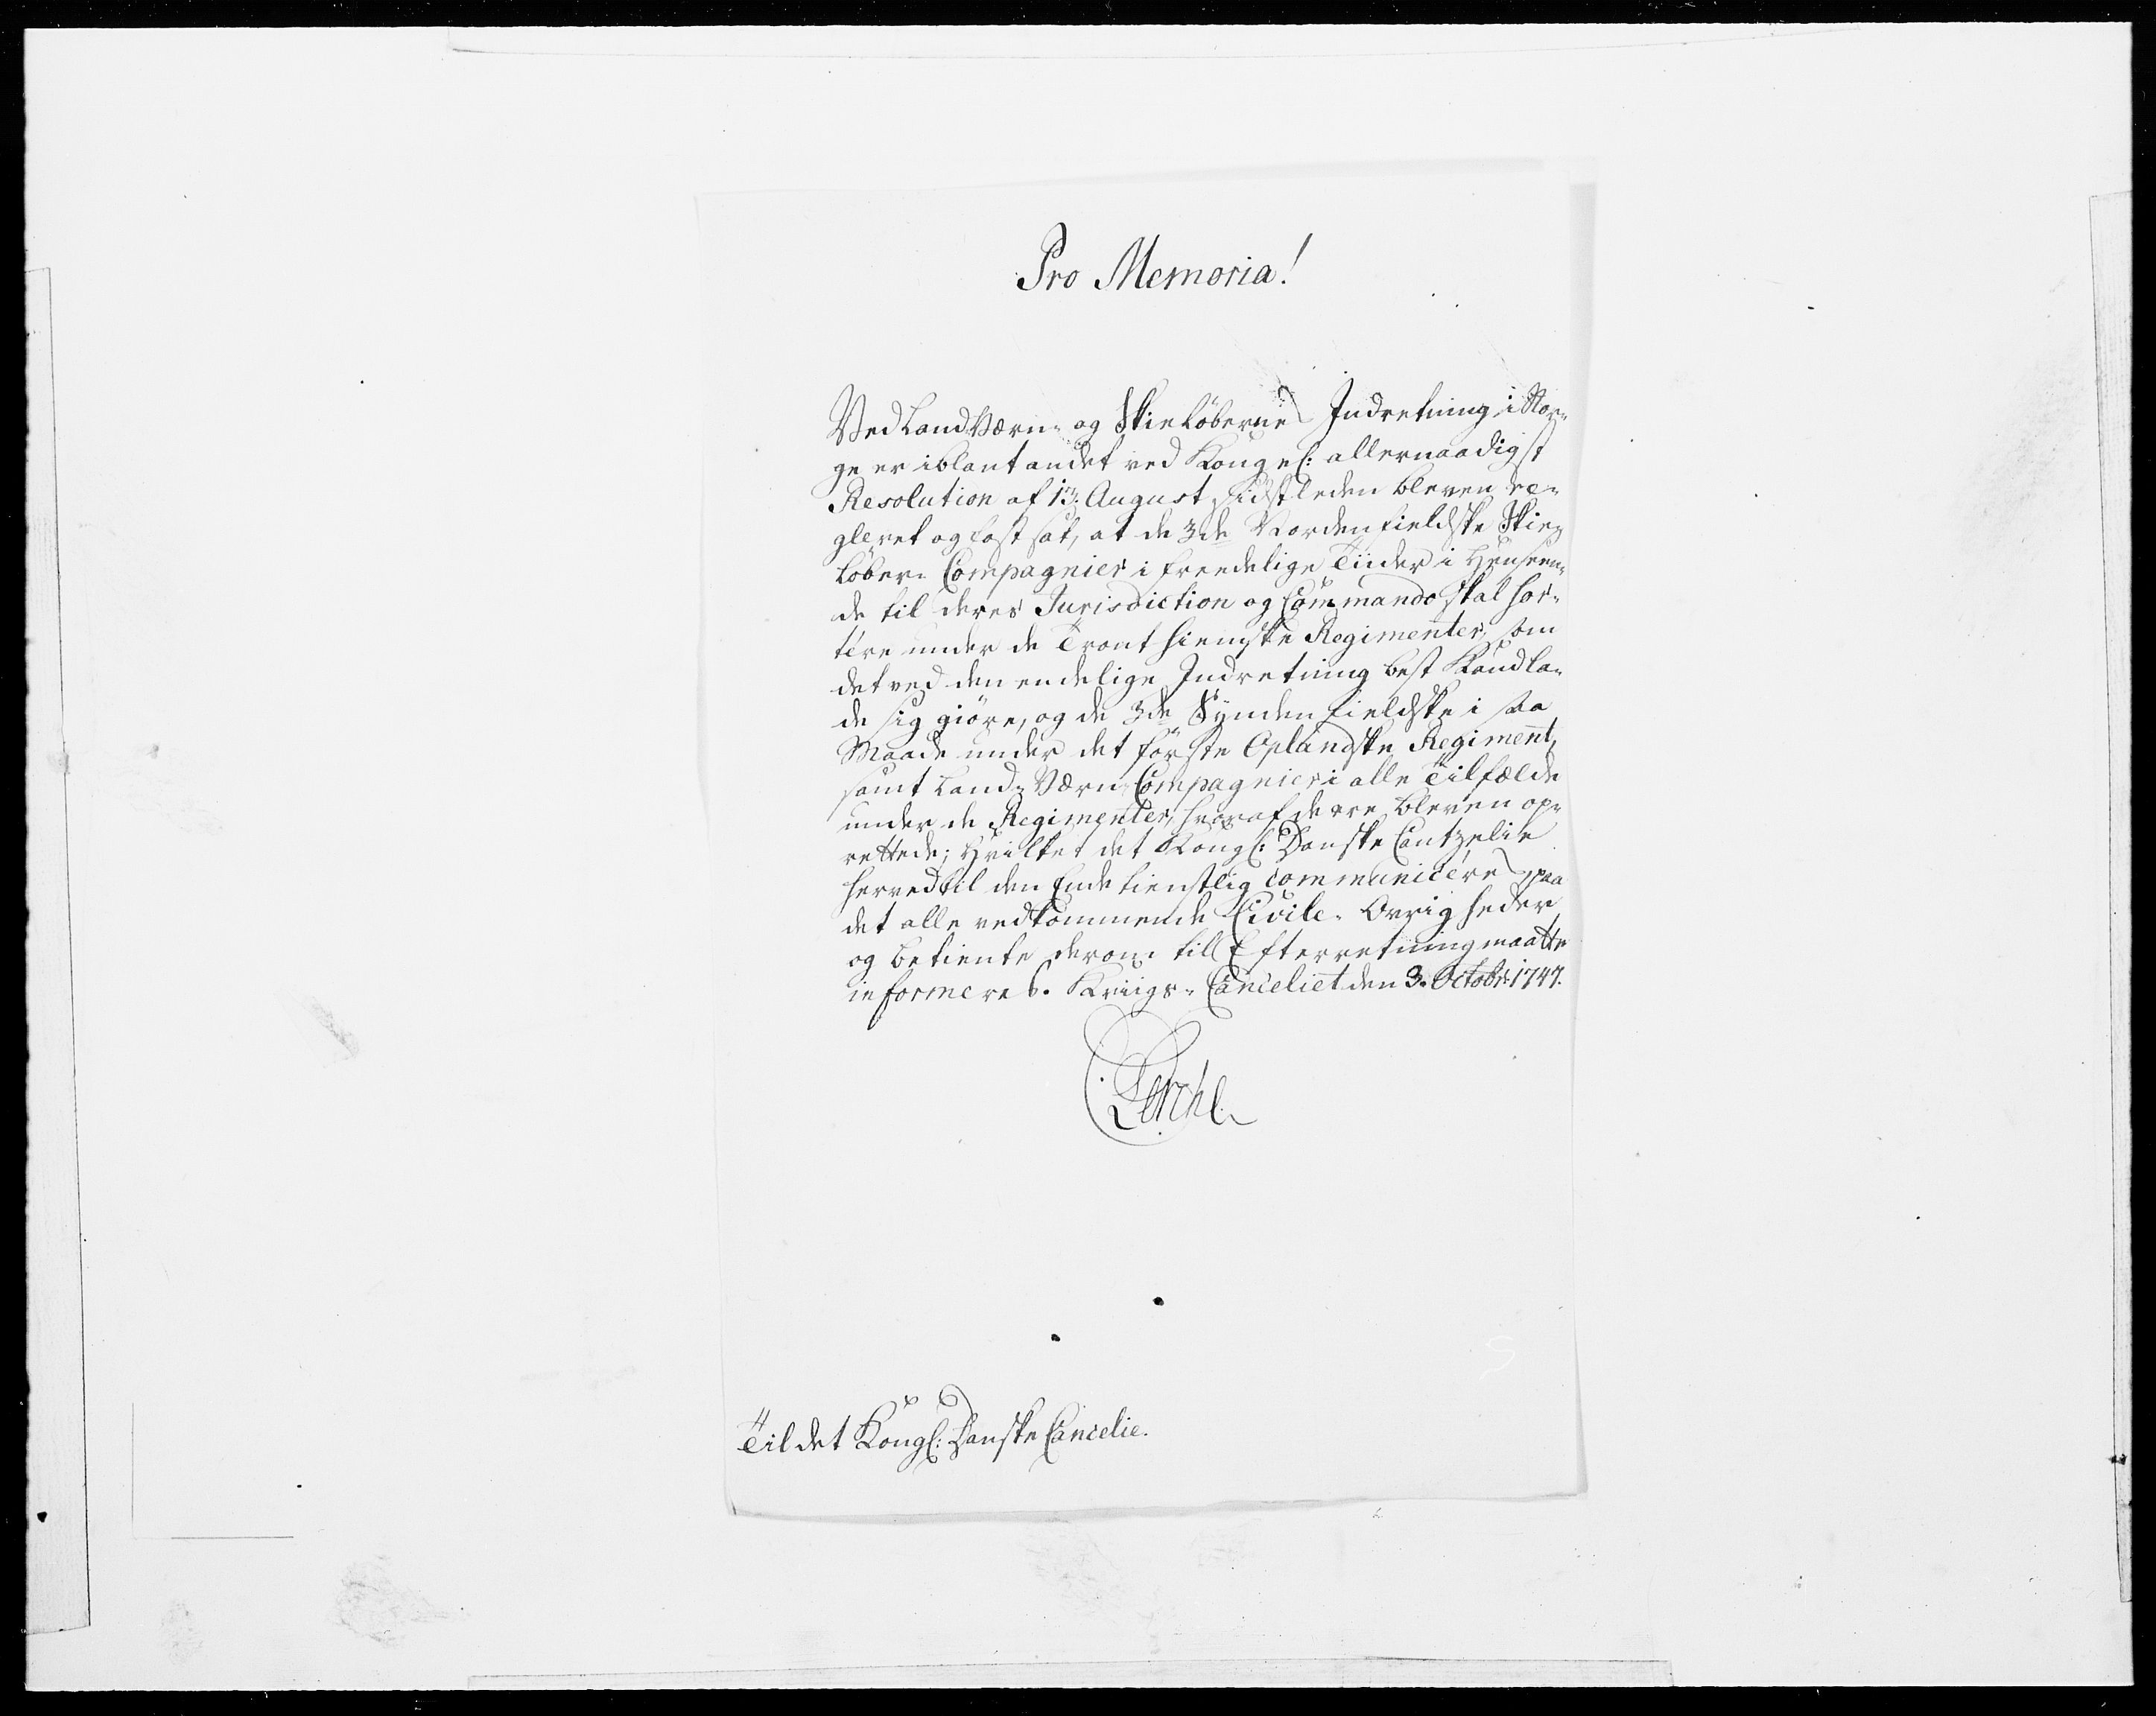 Pro Memoria!
Ved Land-Værn- og Skie Løbernes Indretning i Nor-
ge er iblant andet ved Kongel: allernaadigst
Resolution af 13. August sidstleden bleven re-
gleret og fastsat, at de 3de Nordenfieldske Skie-
Løber-Compagnier i freedelige Tiider i Henseen-
de til deres Jurisdiction og Commando skal sor-
tére under de Tronthiemske Regimenter, som
det ved den endelige Indretning best Kand la-
de sig giøre, og de 3de Synden fieldske i saa
Maade under det første Oplandske Regiment,
samt Land-Værn-Compagnier i alle Tilfælde
under de Regimenter, hvoraf de ere bleven op-
rettede; Hvilket det Kongl: Danske Cantzelie
herved til den Ende tienstlig communicéres, paa
det alle vedkommende Civile-Øvrigheder
og Betiente derom til Efterretning maatte
informeres. Kriigs-Canceliet den 3. Octobr: 1747.
Lerche
Til det Kongl: Danske Cancelie.